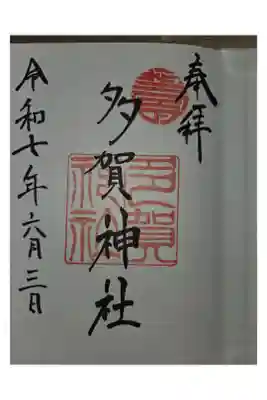 奉拝
壽
多賀神社
多賀神社
令和七年六月三日